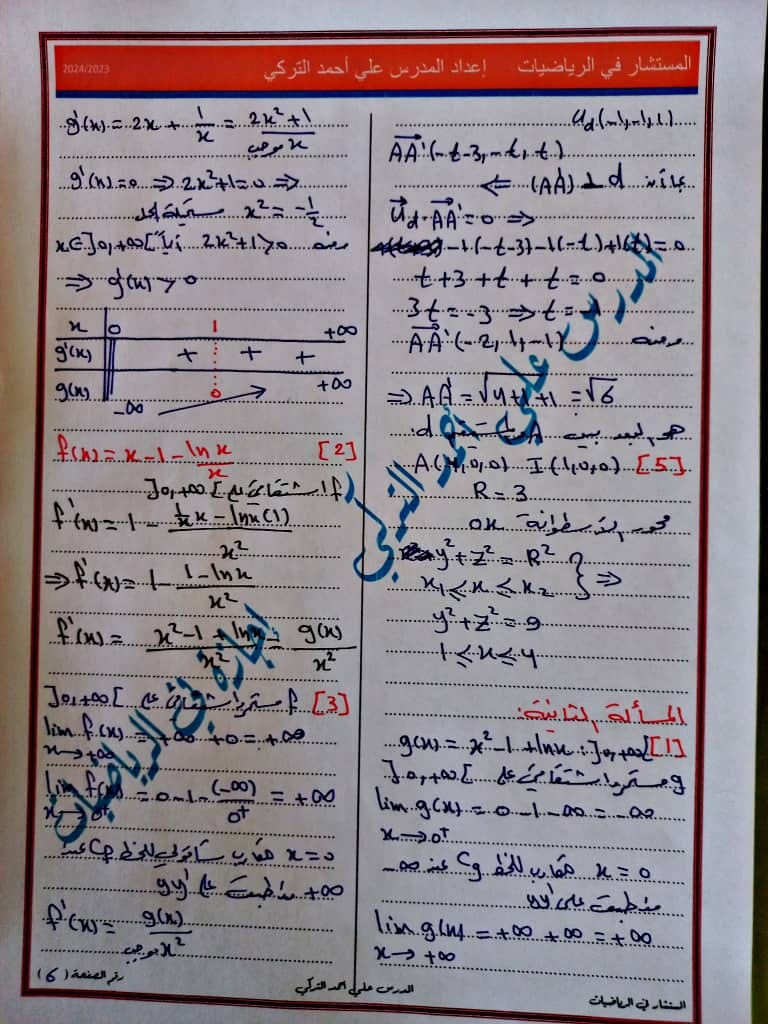 المستشار في الرياضيات إعداد المدرس علي أحمد التركي 2024/2023
u_d(-1,-1,1)
AA'(-t-3,-t,t)
(AA') ⊥ d ⇐
u_d · AA' = 0 ⇒
-1(-t-3)-1(-t)+1(t)=0
t+3+t+t=0
3t=-3 ⇒ t=-1
ومنه AA'(-2,1,-1)
⇒ AA' = √4+1+1 = √6
هو البعد بين A والمستقيم d.
[5] A(4,0,0) I(1,0,0)
R = 3
محور الأسطوانة ox
y²+z² = R²
x₁ ≤ x ≤ x₂ } ⇒
y²+z² = 9
1 ≤ x ≤ 4
المسألة الثانية:
[1] g(x) = x²-1+lnx : ]0,+∞[
g مستمر واشتقاقي على ]0,+∞[
lim g(x) = 0-1-∞ = -∞
x→0⁺
x=0 مقارب للخط Cg عند -∞
منطبق على yy'
lim g(x) = +∞+∞ = +∞
x→+∞
g'(x) = 2x + 1/x = (2x²+1)/x
موجب
g'(x)=0 ⇒ 2x²+1=0 ⇒
x² = -1/2 مستحيلة الحل
ومنه 2x²+1>0 أياً x∈]0,+∞[
⇒ g'(x) > 0
x 0 1 +∞
g'(x) + + +
g(x) -∞ 0 +∞
[2] f(x) = x-1-lnx/x
f اشتقاقي على ]0,+∞[
f'(x) = 1 - (1/x x - lnx(1))/x²
⇒ f'(x) = 1 - (1-lnx)/x²
f'(x) = (x²-1+lnx)/x² = g(x)/x²
[3] f مستمر واشتقاقي على ]0,+∞[
lim f(x) = +∞+0 = +∞
x→+∞
lim f(x) = 0-1-(-∞)/0⁺ = +∞
x→0⁺
x=0 مقارب شاقولي للخط Cf عند
+∞ منطبق على yy'
f'(x) = g(x)/x²
موجب
المستشار في الرياضيات
المدرس علي أحمد التركي
رقم الصفحة (6)
المدرس علي أحمد التركي
إجازة في الرياضيات